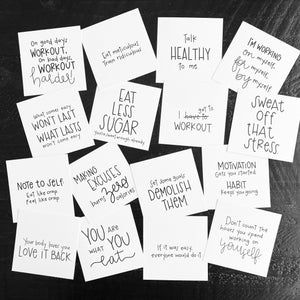 On good days
WORKOUT.
On bad days,
WORKOUT
harder!
Eat meticulous.
Train ridiculous.
Talk
HEALTHY
to me
I'M WORKING
on myself
for myself
by myself
What comes easy
WON'T LAST
WHAT LASTS
won't come easy
EAT
LESS
SUGAR
You're sweet enough already
got to
I have to
WORKOUT
SWEAT
OFF
THAT
STRESS
NOTE to SELF
Eat like crap,
feel like crap
MAKING
EXCUSES
burns zero calories
Set some goals
DEMOLISH
THEM
MOTIVATION
Gets you started
HABIT
Keeps you going
Your body loves you
LOVE IT BACK
YOU ARE
WHAT YOU
eat
If it was easy,
everyone would do it
Don't count the
hours you spend
working on
yourself